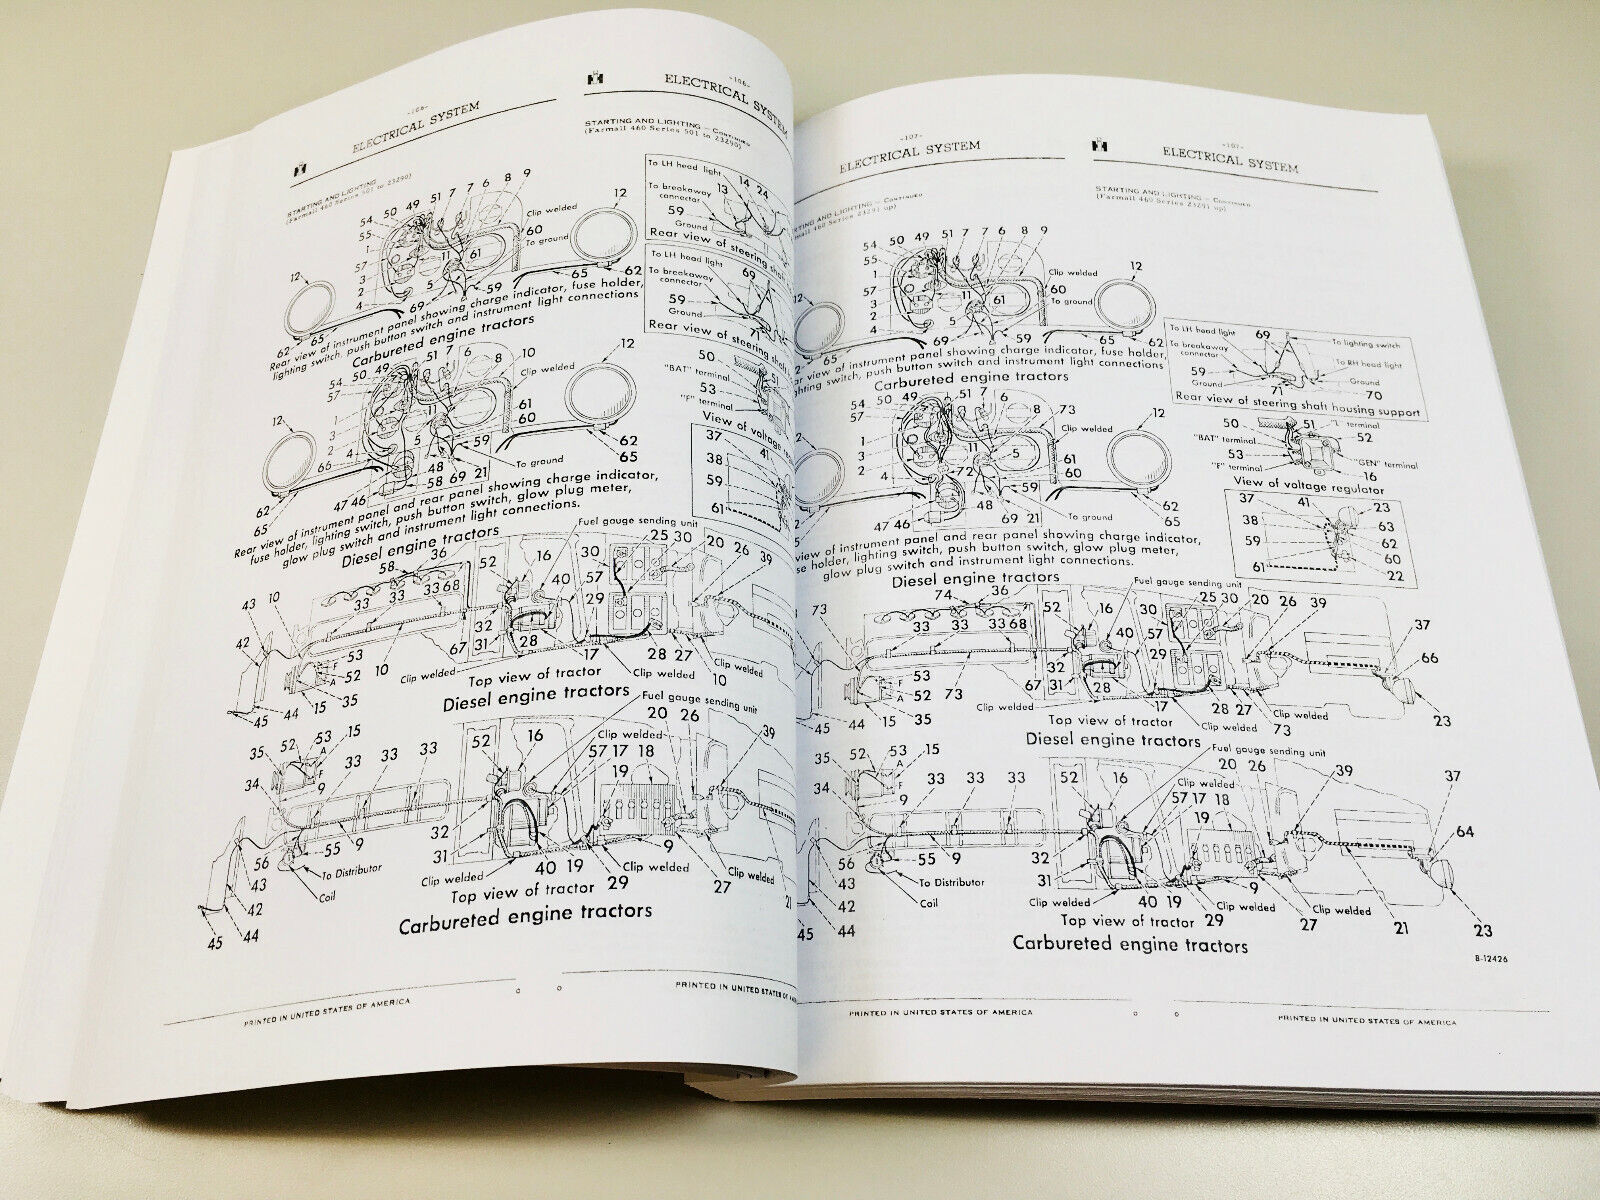 -106-
ELECTRICAL SYSTEM
STARTING AND LIGHTING
(Farmall 460 Series 501 to 23290)
54 50 49 51 7 7 6 8 9
55
1
57
3
2
4
12
Clip welded
60
To ground
61
11
5
69 59 65 62
12
62 65
Rear view of instrument panel showing charge indicator, fuse holder,
lighting switch, push button switch and instrument light connections
Carbureted engine tractors
54 50 49 51 7 6 8 10
57
Clip welded
12
1
3
2
4
66
61
60
11
5
59
To ground
62
65
48
58 69 21
47 46
12
62
65
Rear view of instrument panel and rear panel showing charge indicator,
fuse holder, lighting switch, push button switch, glow plug meter,
glow plug switch and instrument light connections.
Diesel engine tractors
Fuel gauge sending unit
58 36 52 16 30 25 30 20 26 39
43 10 33 33 33 68 40 57 29
42
32
31
67 28 17
53
F
52
A
35
15
44
45
10
Clip welded
Top view of tractor
Clip welded
28 27
Clip welded
10
Diesel engine tractors
Fuel gauge sending unit
20 26
35 52 53 15
A
F
9
34
33 33 33
52 16
Clip welded
57 17 18
19
39
32
31
56 55 9
To Distributor
Coil
43
42
44
45
Clip welded
40 19
29
Clip welded
9
Clip welded
27
21
Top view of tractor
Carbureted engine tractors
PRINTED IN UNITED STATES OF AMERICA
-106-
ELECTRICAL SYSTEM
STARTING AND LIGHTING — Continued
(Farmall 460 Series 501 to 23290)
To LH head light 14 24
13
To breakaway
connector
59
Ground
Rear view of steering
To LH head light
69
To breakaway
connector
59
Ground
71
Rear view of steering
50
"BAT" terminal
51
53
"F" terminal
View of voltage
37
41
38
59
61
PRINTED IN UNITED STATES OF
-107-
ELECTRICAL SYSTEM
AND LIGHTING — Continued
460 Series 23291 up)
54 50 49 51 7 7 6 8 9
55
1
57
3
2
4
Clip welded
60
To ground
12
61
11
5
69 59 65 62
12
65
view of instrument panel showing charge indicator, fuse holder,
switch, push button switch and instrument light connections
Carbureted engine tractors
54 50 49 51 7 6 8 73
57
Clip welded
12
1
3
2
4
11
5
61
60
72
59
48
47 46
69 21
To ground
62
65
view of instrument panel and rear panel showing charge indicator,
holder, lighting switch, push button switch, glow plug meter,
glow plug switch and instrument light connections.
Diesel engine tractors
Fuel gauge sending unit
74 36 52 16 30 25 30 20 26 39
73 33 33 33 68 40 57 29
37
66
23
32
31
67 28 17
53
F
52
A
35
15
44
45
73
Clip welded
Top view of tractor
Clip welded
28 27
Clip welded
73
Diesel engine tractors
Fuel gauge sending unit
20 26
52 53 15
A
F
9
34
33 33 33
52 16
Clip welded
57 17 18
19
39
37
64
32
31
56 55 9
To Distributor
Coil
43
42
44
45
Clip welded
40 19
29
9
Clip welded
27
Clip welded
21
23
Top view of tractor
Carbureted engine tractors
B-12426
PRINTED IN UNITED STATES OF AMERICA
-107-
ELECTRICAL SYSTEM
STARTING AND LIGHTING — Continued
(Farmall 460 Series 23291 up)
To LH head light
69
To lighting switch
To breakaway
connector
To RH head light
59
Ground
71
Ground
70
Rear view of steering shaft housing support
50
51
"L" terminal
52
"BAT" terminal
53
"F" terminal
"GEN" terminal
16
View of voltage regulator
37 41 23
38
63
59
62
60
61
22
PRINTED IN UNITED STATES OF AMERICA